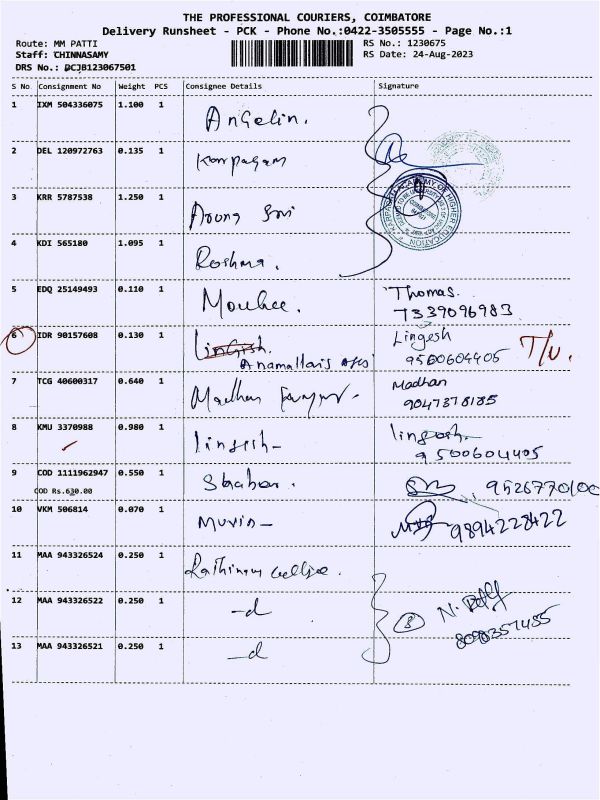 THE PROFESSIONAL COURIERS, COIMBATORE
Delivery Runsheet - PCK - Phone No.:0422-3505555 - Page No.:1
Route: MM PATTI
Staff: CHINNASAMY
DRS No.: DCJB123067501
RS No.: 1230675
RS Date: 24-Aug-2023
S No Consignment No Weight PCS Consignee Details Signature
1 IXM 504336075 1.100 1 Angelin.
2 DEL 120972763 0.135 1 Karpagam
3 KRR 5787538 1.250 1 Arung Sri
KARPAGAM ACADEMY OF HIGHER EDUCATION
COIMBATORE
4 KDI 565180 1.095 1 Roshma.
5 EDQ 25149493 0.110 1 Moulee. Thomas.
7339096983
6 IDR 90157608 0.130 1 Lingish. Lingesh
Anamallais 9500604405 T/U.
7 TCG 40600317 0.640 1 Madhan Madhan
9047378185
8 KMU 3370988 0.980 1 lingesh- lingesh
9500604405
9 COD 1111962947 0.550 1 9526770100
COD Rs.630.00
10 VKM 506814 0.070 1 Muvin- 9894228422
11 MAA 943326524 0.250 1 Rathinam college.
12 MAA 943326522 0.250 1 -d
3 N.
8098357485
13 MAA 943326521 0.250 1 -d